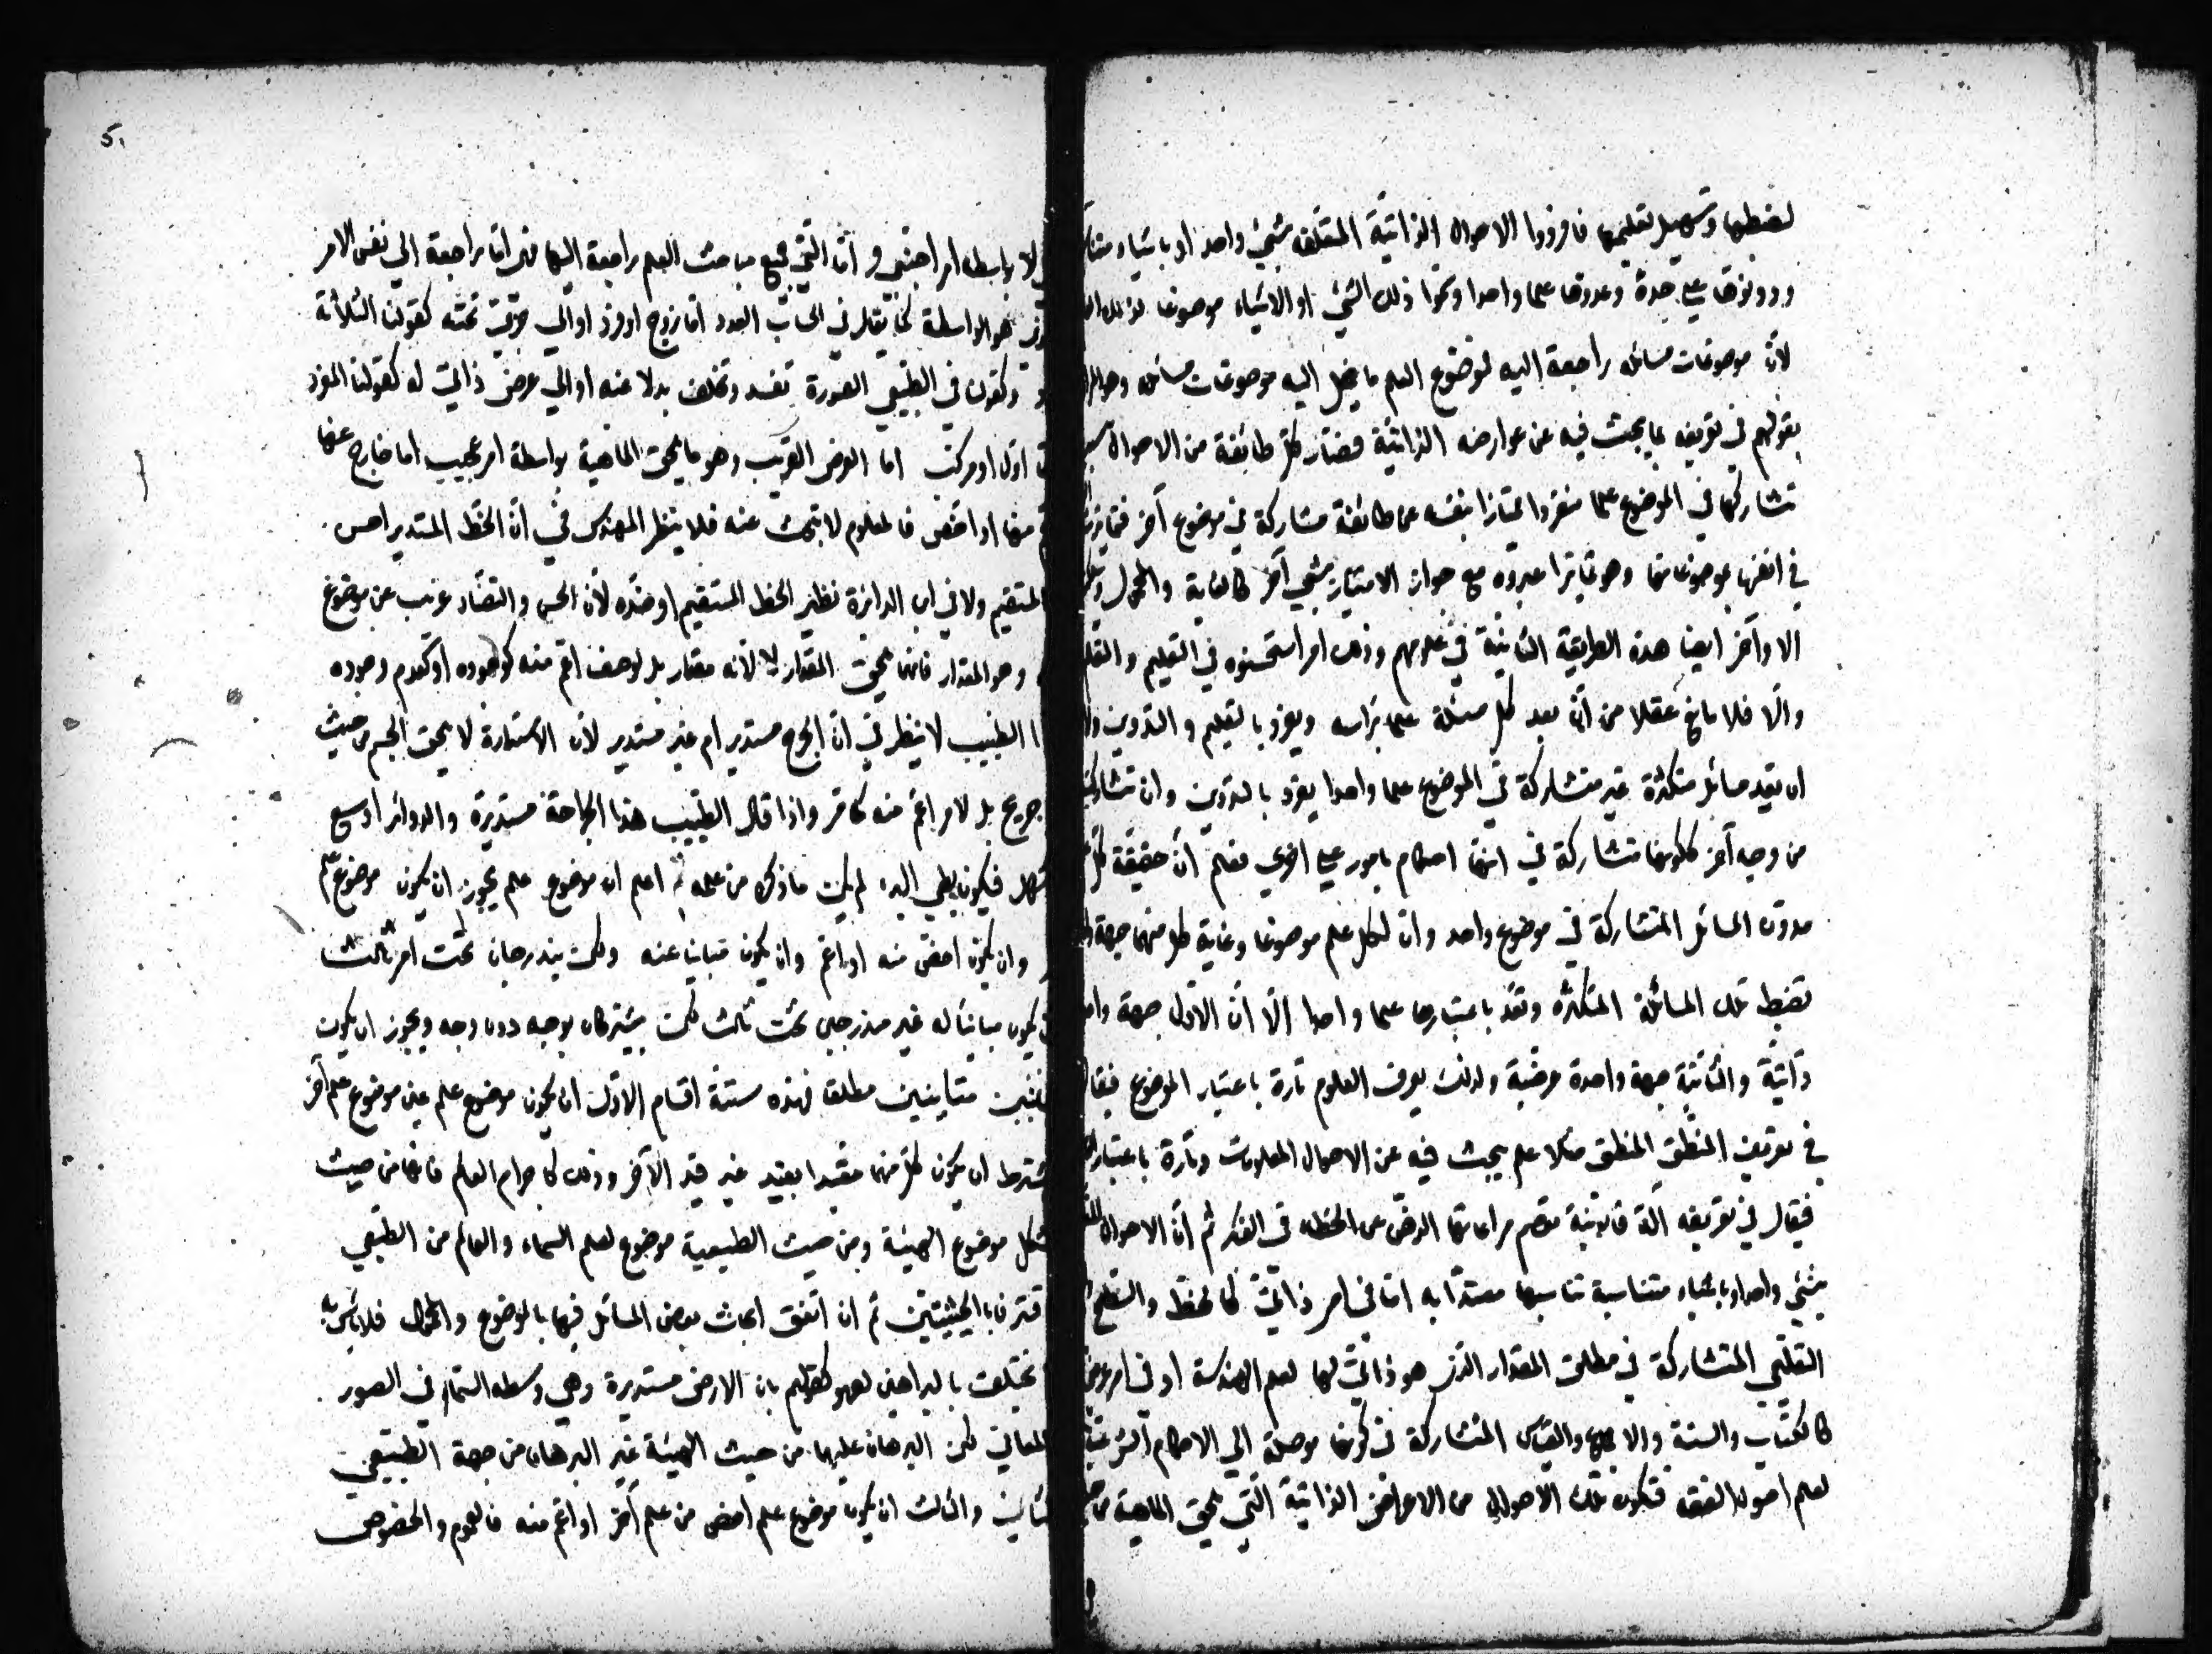 لضبطها وتسهيل تعليمها فافردوا الاحوال الذاتية المتعلقة بشيئ واحد او باشياء
ودونوها على حدة وعدوها علما واحدا وسموا ذلك الشيئ او الاشياء موضوعا لذلك
لان موضوعات مسائله راجعة اليه فموضوع العلم ما ينحل اليه موضوعات مسائله وهو المراد
بقولهم في تعريفه بما يبحث فيه عن عوارضه الذاتية فصار كل طائفة من الاحوال بسبب
تشاركها في الموضوع علما منفردا ممتازا بنفسه عن طائفة مشاركة في موضوع آخر
في انفسها بموضوعاتها وهو تمايز اعتبروه مع جواز الامتياز بشيئ آخر كالغاية والمحمول
الاواخر ايضا هذه الطريقة الثانية في علومهم وذلك امر استحسنوه في التعليم والتعلم
والا فلا مانع عقلا من ان يعد كل مسئلة علما برأسه ويفرد بالتعليم والتدوين
ان يعد مسائل متكثرة غير متشاركة في الموضوع علما واحدا يفرد بالتدوين وان تشاركت
من وجه آخر ككونها متشاركة في انها احكام بامور على اخرى فعلم ان حقيقة كل
مدون المسائل المتشاركة في موضوع واحد وان لكل علم موضوعا وغاية كل منهما جهة
تضبط تلك المسائل المتكثرة وتعد باعتبارها علما واحدا الا ان الاول جهة
ذاتية والثانية جهة واحدة عرضية ولذلك يعرف العلوم تارة باعتبار الموضوع فيقال
في تعريف المنطق المنطق مثلا علم يبحث فيه عن الاحوال المعلومات وتارة باعتبار
فيقال في تعريفه آلة قانونية تعصم مراعاتها الذهن عن الخطاء في الفكر ثم ان الاحوال
بشيئ واحد او باشياء متناسبة تناسبا معتدا به اما في امر ذاتي كالخط والسطح
التعليمي المتشاركة في مطلق المقدار الذي هو ذاتي لها لعلم الهندسة او في امر عرضي
كالكتاب والسنة والاجماع والقياس المتشاركة في كونها موصلة الى الاحكام الشرعية
لعلم اصول الفقه فتكون تلك الاحوال من الاعراض الذاتية التي تلحق الماهية من
لا بواسطة امر اجنبي و اما التي جميع مباحث العلم راجعة اليها فهي اما راجعة الى نفس الامر
هو الواسطة كما يقال في الحساب العدد اما زوج او فرد او الى جزئي تحته كقولنا الثلاثة
وكقولنا في الطبيعي الصورة تفسد وتخلف بدلا عنه او الى عرض ذاتي له كقولنا المفرد
اول او مركب اما العرض الغريب وهو ما يلحق الماهية بواسطة امر عجيب اما خارج عنها
منها او اخص فالعلوم لا تبحث عنه فلا ينظر المهندس في ان الخط المستدير احسن
المستقيم ولا في ان الدائرة نظير الخط المستقيم او ضده لان الحسن والتضاد غريب عن موضوع
وهو المقدار فانهما يلحق المقدار لا لانه مقدار بل لوصف اعم منه كوجوده او كعدم وجوده
الطبيب لا ينظر في ان الجرح مستدير ام غير مستدير لان الاستدارة لا يلحق الجسم من حيث
جريح بل لامر اعم منه كما مر واذا قال الطبيب هذا الجراحة مستديرة والدوائر اوسع
فيكون بطيئ البرء لم يكن ما ذكره من علمه ثم اعلم ان موضوع علم يجوز ان يكون موضوع علم
وان يكون اخص منه او اعم وان يكون مباينا عنه ولكن يندرجان تحت امر ثالث
يكون مباينا له غير مندرجين تحت ثالث لكن يشتركان بوجه دون وجه ويجوز ان يكون
متباينين مطلقا فهذه ستة اقسام الاول ان يكون موضوع علم عين موضوع علم آخر
يشترط ان يكون كل منهما مقيدا بقيد غير قيد الآخر وذلك كاجرام العالم فانها من حيث
الشكل موضوع الهيئة ومن حيث الطبيعية موضوع لعلم السماء والعالم من الطبيعي
فافترقا بالحيثيتين ثم ان اتفق ابحاث بعض المسائل فيهما بالموضوع والمحمول فلا بأس به
يختلف بالبراهين لعموم كقولهم بان الارض مستديرة وهي وسط السماء في الصور
المعاني لكن البرهان عليهما من حيث الهيئة غير البرهان من جهة الطبيعي
والثالث ان يكون موضوع علم اخص من علم آخر او اعم منه فالعموم والخصوص